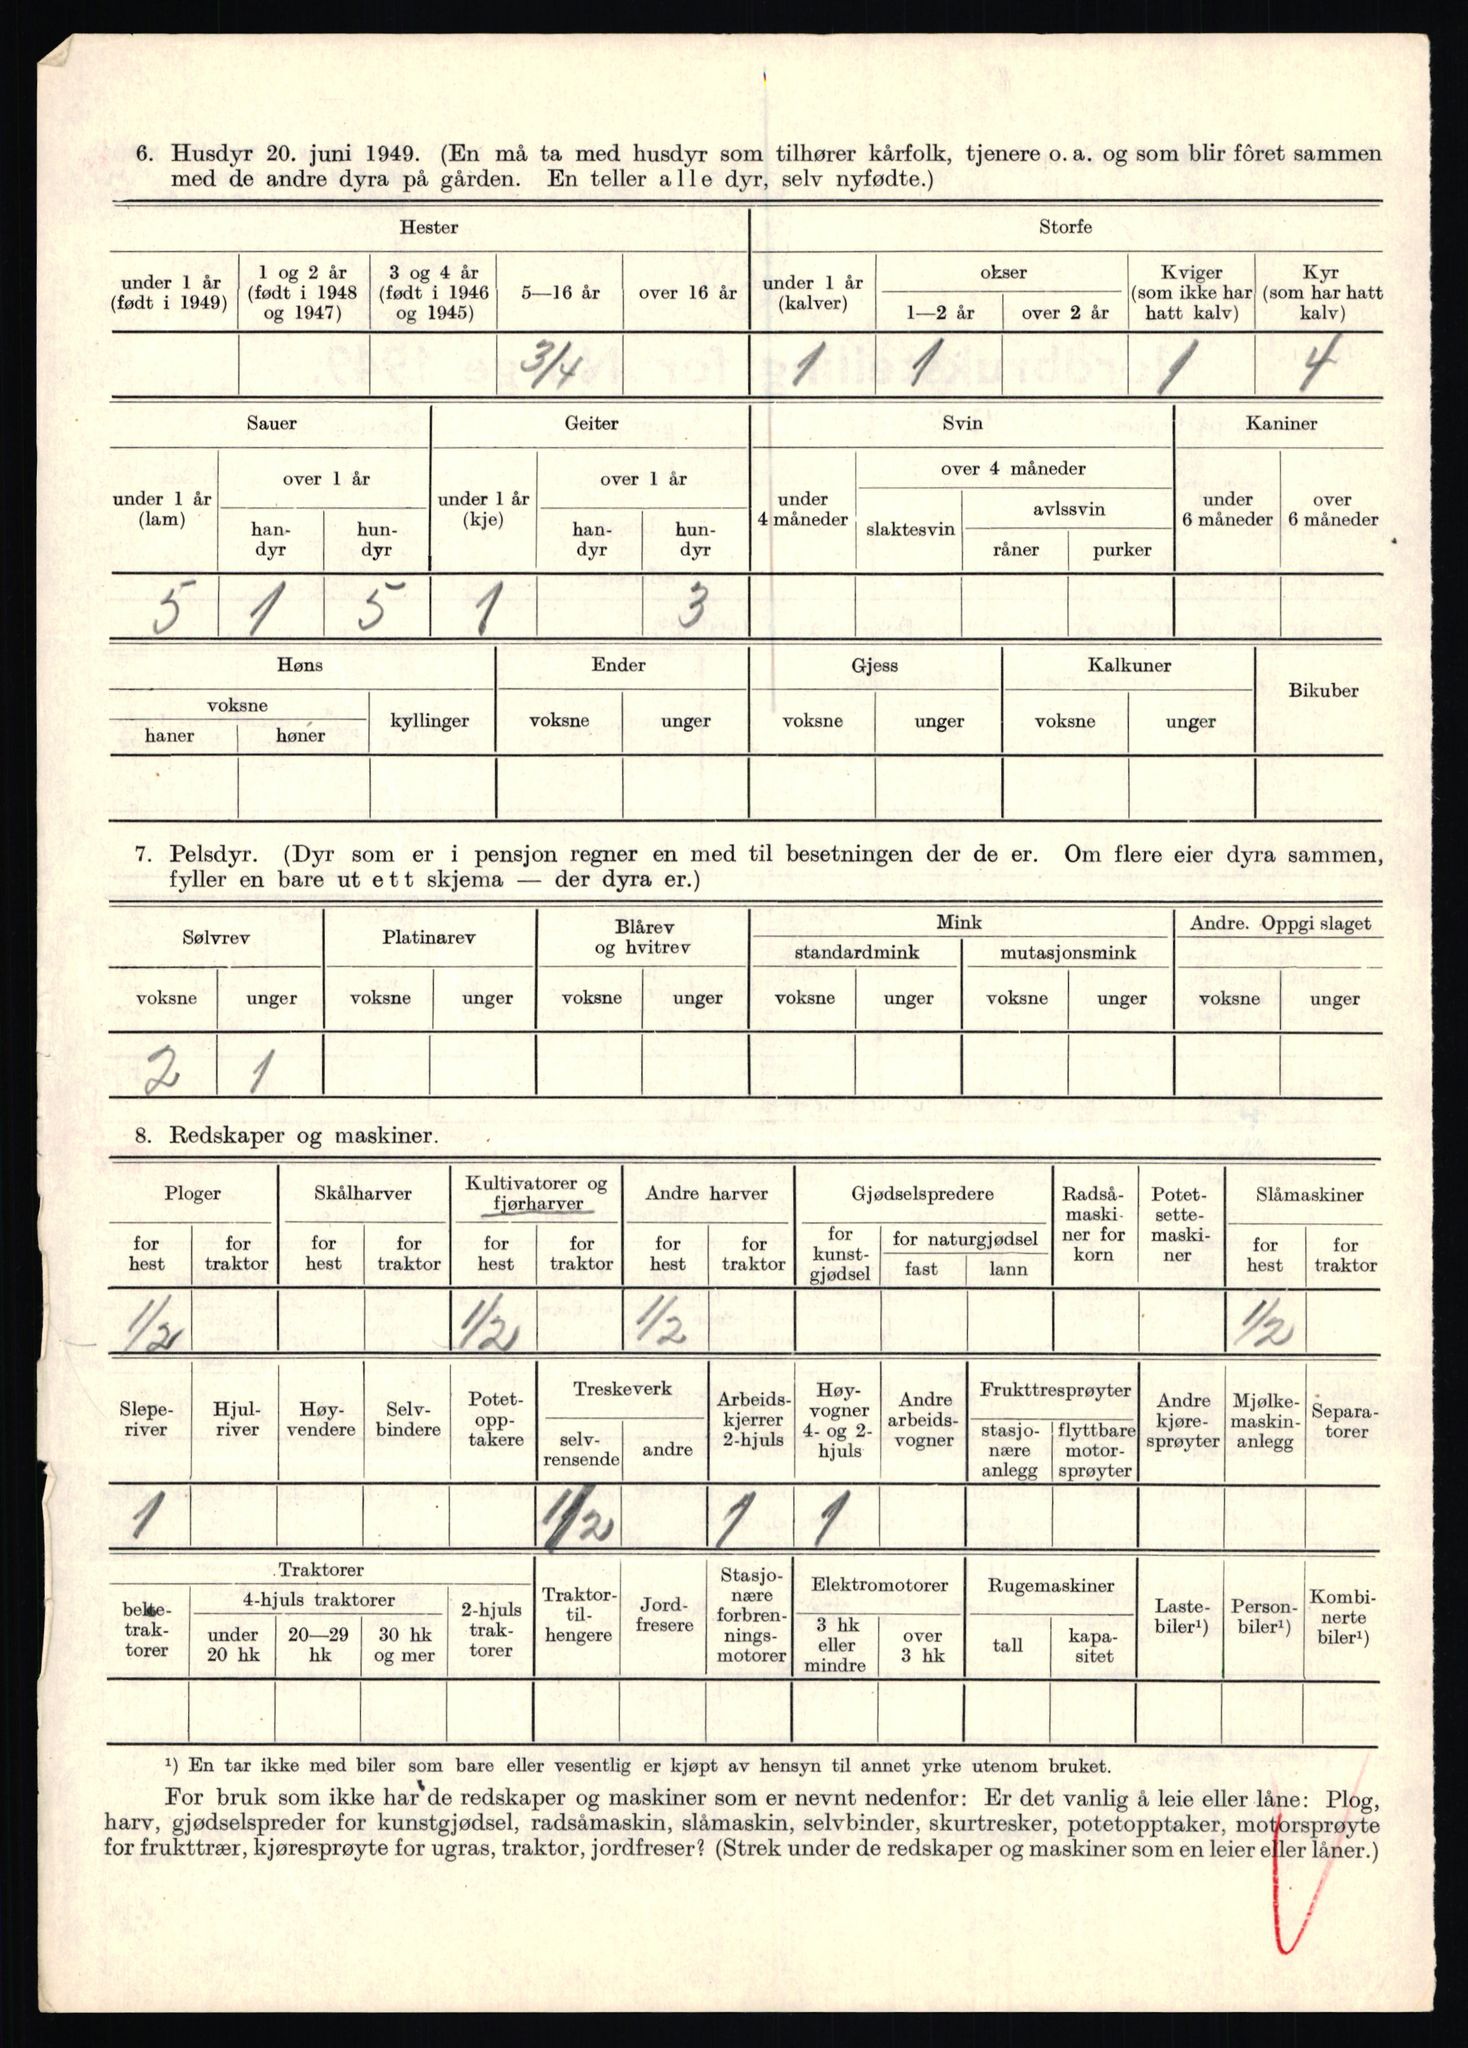 6. Husdyr 20. juni 1949. (En må ta med husdyr som tilhører kårfolk, tjenere o. a. og som blir fôret sammen
med de andre dyra på gården. En teller alle dyr, selv nyfødte.)
Hester Storfe
under 1 år (født i 1949) 1 og 2 år (født i 1948 og 1947) 3 og 4 år (født i 1946 og 1945) 5—16 år over 16 år under 1 år (kalver) okser 1—2 år over 2 år Kviger (som ikke har hatt kalv) Kyr (som har hatt kalv)
3/4 1 1 1 4
Sauer Geiter Svin Kaniner
under 1 år (lam) over 1 år han-dyr hun-dyr under 1 år (kje) over 1 år han-dyr hun-dyr under 4 måneder over 4 måneder slaktesvin avlssvin råner purker under 6 måneder over 6 måneder
5 1 5 1 3
Høns Ender Gjess Kalkuner Bikuber
voksne haner høner kyllinger voksne unger voksne unger voksne unger
7. Pelsdyr. (Dyr som er i pensjon regner en med til besetningen der de er. Om flere eier dyra sammen,
fyller en bare ut ett skjema — der dyra er.)
Sølvrev Platinarev Blårev og hvitrev Mink standardmink mutasjonsmink Andre. Oppgi slaget
voksne unger voksne unger voksne unger voksne unger voksne unger voksne unger
2 1
8. Redskaper og maskiner.
Ploger Skålharver Kultivatorer og fjørharver Andre harver Gjødselspredere Radså-maski-ner for korn Potet-sette-maski-ner Slåmaskiner
for hest for traktor for hest for traktor for hest for traktor for hest for traktor for kunst-gjødsel for naturgjødsel fast lann for hest for traktor
1/2 1/2 1/2 1/2
Slepe-river Hjul-river Høy-vendere Selv-bindere Potet-opp-takere Treskeverk selv-rensende andre Arbeids-kjerrer 2-hjuls Høy-vogner 4- og 2-hjuls Andre arbeids-vogner Frukttresprøyter stasjo-nære anlegg flyttbare motor-sprøyter Andre kjøre-sprøyter Mjølke-maskin-anlegg Separa-torer
1 1/2 1 1
Traktorer belte-trak-torer 4-hjuls traktorer under 20 hk 20—29 hk 30 hk og mer 2-hjuls trak-torer Traktor-til-hengere Jord-fresere Stasjo-nære forbren-nings-motorer Elektromotorer 3 hk eller mindre over 3 hk Rugemaskiner tall kapa-sitet Laste-biler¹) Person-biler¹) Kombi-nerte biler¹)
¹) En tar ikke med biler som bare eller vesentlig er kjøpt av hensyn til annet yrke utenom bruket.
For bruk som ikke har de redskaper og maskiner som er nevnt nedenfor: Er det vanlig å leie eller låne: Plog,
harv, gjødselspreder for kunstgjødsel, radsåmaskin, slåmaskin, selvbinder, skurtresker, potetopptaker, motorsprøyte
for frukttrær, kjøresprøyte for ugras, traktor, jordfreser? (Strek under de redskaper og maskiner som en leier eller låner.)